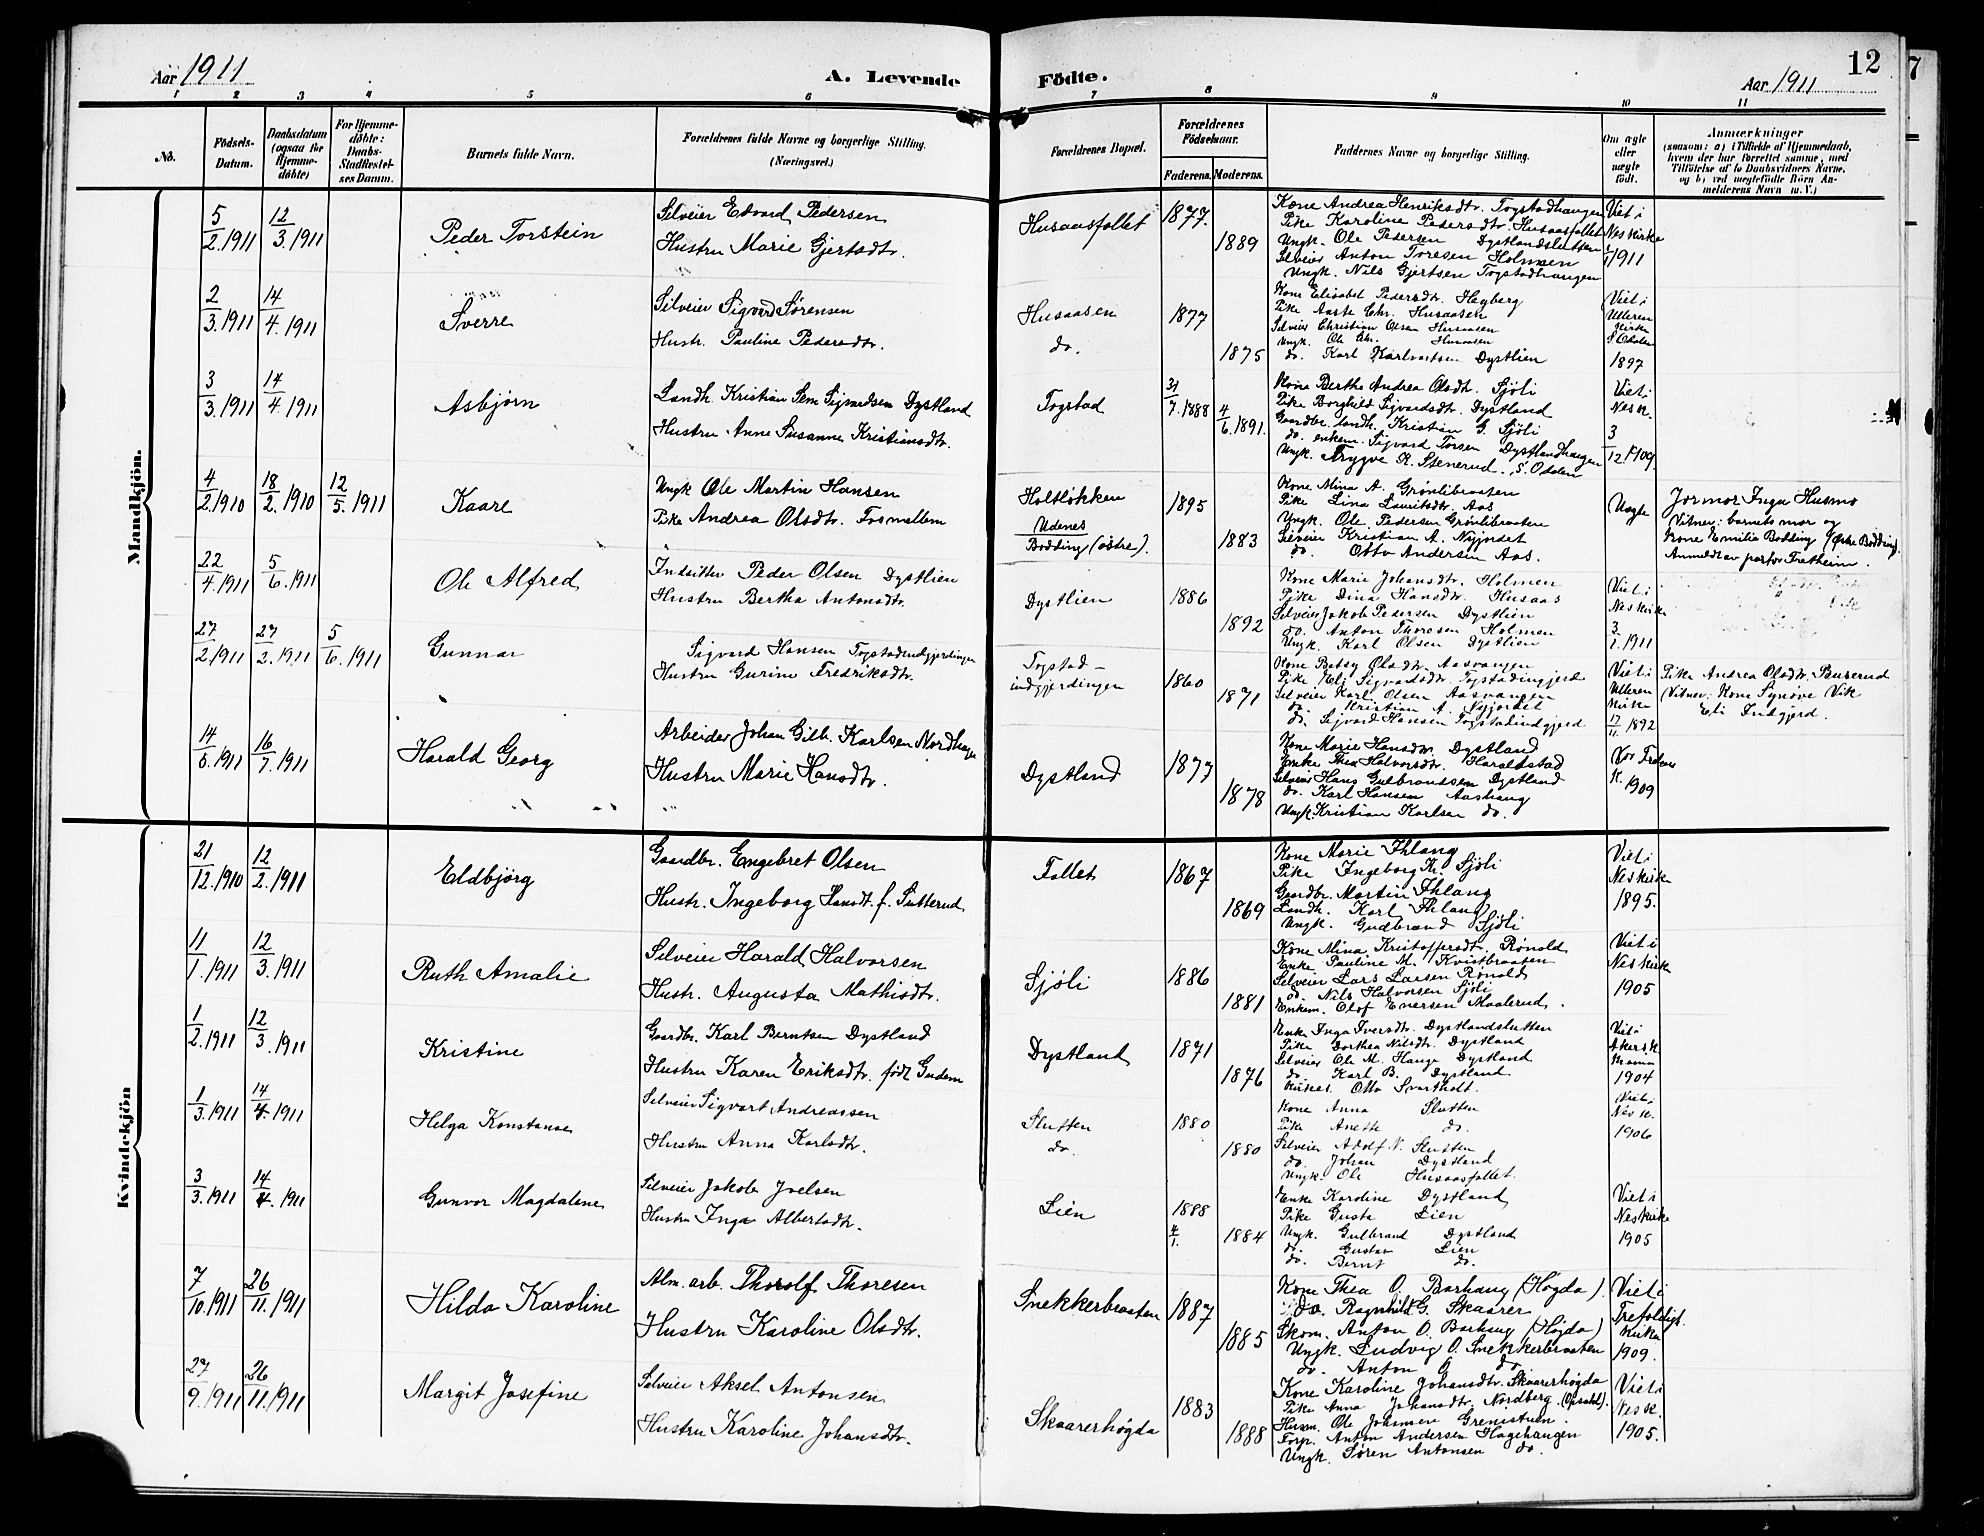 Aar 1911
A. Levende
Födte.
12
Aar 1911
1 2 3 4 5 6 7 8 9 10 11
No.
Födsels-
Datum.
Daabsdatum
(ogsaa for
Hjemme-
döbte)
For Hjemme-
döbte:
Daabs-
Stadfæstel-
ses Datum.
Barnets fulde Navn.
Forældrenes fulde Navne og borgerlige Stilling.
(Næringsvei.)
Forældrenes Bopæl.
Forældrenes
Födselsaar.
Faderens. Moderens.
Faddernes Navne og borgerlige Stilling.
Om ægte
eller
uægte
födt.
Anmærkninger
(saasom: a) i Tilfælde af Hjemmedaab,
hvem der har forrettet samme, med
Tilföielse af to Daabsvidners Navne,
og b) ved uægtefödte Börn An-
melderens Navn m. V.)
Mandkjön.
5/2.1911 12/3.1911
Peder Torstein
Selveier Edvard Pedersen
Hustru Marie Gjertsdtr.
Husaasfallet
1877.
1889
Kone Andrea Henriksdtr. Togstadhaugen
Pike Karoline Pedersdtr. Husaasfallet
Ungk. Ole Pedersen Dystlandslutten
Selveier Anton Toresen Holmen
Ungk. Nils Gjertsen Togstadhaugen
Viet i
Nes kirke
1911
2/3.1911 14/4.1911
Sverre
Selveier Sigvard Sörensen
Hustr. Pauline Pedersdtr.
Husaasen
do.
1877
1875
Kone Elisabet Pedersdtr. Høyberg
Pike Aaste Chr. Husaasen
Selveier Christian Olsen Husaasen
Ungk. Ole Chr. Husaasen
do. Karl Karlvartsen Dystlien
Viet i
Ulleren
kirke
S. Odalen
1897
3/3.1911 14/4.1911
Asbjörn
Landh. Kristian Sem Sigvardsen Dystland
Hustru Anne Susanne Kristiansdtr.
Togstad
31/7.1888
4/6.1891.
Kone Berthe Andrea Olsdtr. Sjöli
Pike Borghild Sigvardsdtr. Dystland
Gaardbr. landh. Kristian G. Sjöli
do. enkem. Sigvard Torsen Dystlandhaugen
Ungk. Trygve K. Stenerud. S. Odalen
Viet i
Nesk.
3/12 1909.
4/2.1910 18/2.1910 12/5.1911
Kaare
Ungk Ole Martin Hansen
Pike Andrea Olsdtr. Fosmellem
Holtløkken
Udenes
Bodding (østre).
1895
1883
Kone Mina A. Grønlibraaten
Pike Lina Lauritsdtr. Aas
Ungk. Ole Pedersen Grønlibraaten
Selveier Kristian A. Nyjordet
do. Otto Andersen Aas.
Uægte
Jormor Inga Husmo
Vitner: barnets mor og
Kone Emilie Bodding (Østre Bodding).
Anmeldt av pastor Fretheim.
22/4.1911 5/6.1911
Ole Alfred
Indsitter Peder Olsen Dystlien
Hustru Bertha Antonsdtr.
Dystlien
1886
1892
Kone Marie Johansdtr. Holmen
Pike Dina Hansdtr. Husaas
Selveier Jakob Petersen Dystlien
do. Anton Thoresen Holmen
Ungk. Karl Olsen Dystlien
Viet i
Nes kirke
3/1.1911
27/2.1911 27/2.1911 5/6.1911
Gunnar
Sigvard Hansen Togstadindgjerdingen
Hustru Gurine Fredriksdtr.
Togstad-
indgjerdingen
1860
1871
Kone Betsy Olsdtr. Aasvangen
Pike Eli Sigvardsdtr. Togstadingjerd
Selveier Karl Olsen Aasvangen
do. Kristian A. Nyjordet
do. Sigvard Hansen Togstadindgjerd
Viet i
Ulleren
kirke
17/11.1892
Pike Andrea Olsdtr. Buserud
Vitner: Kone Synøve Vik
Eli Indgjerd.
14/6.1911 16/7.1911
Harald Georg
Arbeider Johan Gilb. Karlsen Nordhagen
Hustru Marie Hansdtr.
Dystland
1877
1878
Kone Marie Hansdtr. Dystland
Enke Thea Halvorsdtr. Haraldstad
Selveier Hans Gulbrandsen Dystland
do. Karl Hansen Aashaug
Ungk. Kristian Karlsen do.
1909
Kvindekjön
21/12.1910 12/2.1911
Eldbjörg
Gaardbr. Engebret Olsen
Hustr. Ingeborg Hansdt. f. Sutterud
Fallet
1867
1869
Kone Marie Ihlang
Pike Ingeborg Kr. Sjöli
Gaardbr. Martin Ihlang
Landh. Karl Ihlang
Ungk. Gudbrand Sjöli
Viet i
Nes kirke
1895.
11/1.1911 12/3.1911
Ruth Amalie
Selveier Harald Halvorsen
Hustr. Augusta Mathisdtr.
Sjöli
1886
1881
Kone Mina Kristoffersdtr. Rönold
Enke Pauline M. Kvistbraaten
Selveier Lars Larsen Rönold
do. Nils Halvorsen Sjöli
Enkem. Olof Enersen Maalerud.
Viet i
Nes kirke
1905
1/2.1911 12/3.1911
Kristine
Gaardbr. Karl Berntsen Dystland
Hustru Karen Eriksdtr. född Gudem
Dystland
1871
1876
Enke Inga Iversdtr. Dystlandslutten
Pike Dorthea Nilsdtr. Dystland
Selveier Ole M. Hauge Dystland
do. Karl B. Dystland
Otto Svartholt.
Viet i
Akersk.
1904
1/3.1911 14/4.1911
Helga Konstanse
Selveier Sigvart Andreassen
Hustru Anna Karlsdtr.
Slutten
do.
1880
1880
Kone Anna Slutten
Pike Anette do.
Selveier Adolf N. Slutten
do. Johan Dystland
Ungk. Ole Husaasfallet.
Viet i
Nesk.
1906
3/3.1911 14/4.1911
Gunvor Magdalene
Selveier Jakob Joelsen
Hustru Inga Albertsdtr.
Lien
1888
4/1.
1884
Enke Karoline Dystland
Pike Gusta Lien
Ungk. Gulbrand Dystland
do. Gustav Lien
do. Bernt do.
Viet i
Nes kirke
1905
7/10.1911 26/11.1911
Hilda Karoline
Alm. arb. Thorolf Thoresen
Hustru Karoline Olsdtr.
Snekkerbraaten
1887
1885
Kone Thea O. Barhaug (Høgda).
do. Ragnhild G. Skaarer
Skom. Anton O. Barhaug (Høgda)
Ungk. Ludvig O. Snekkerbraaten
do. Anton O. do.
Viet i
Trefoldigh.
kirke
1909.
27/9.1911 26/11.1911
Margit Josefine
Selveier Aksel Antonsen
Hustru Karoline Johansdtr.
Skaarerhögda
1883
1888
Kone Karoline Johansdtr. Skaarerhögda
Pike Anna Johansdtr. Nordberg (Opsahl).
Husm. Ole Johansen Grenistuen.
Forp. Anton Andersen Hagehaugen
Ungk. Sören Antonsen do.
Viet i
Nesk.
1905.